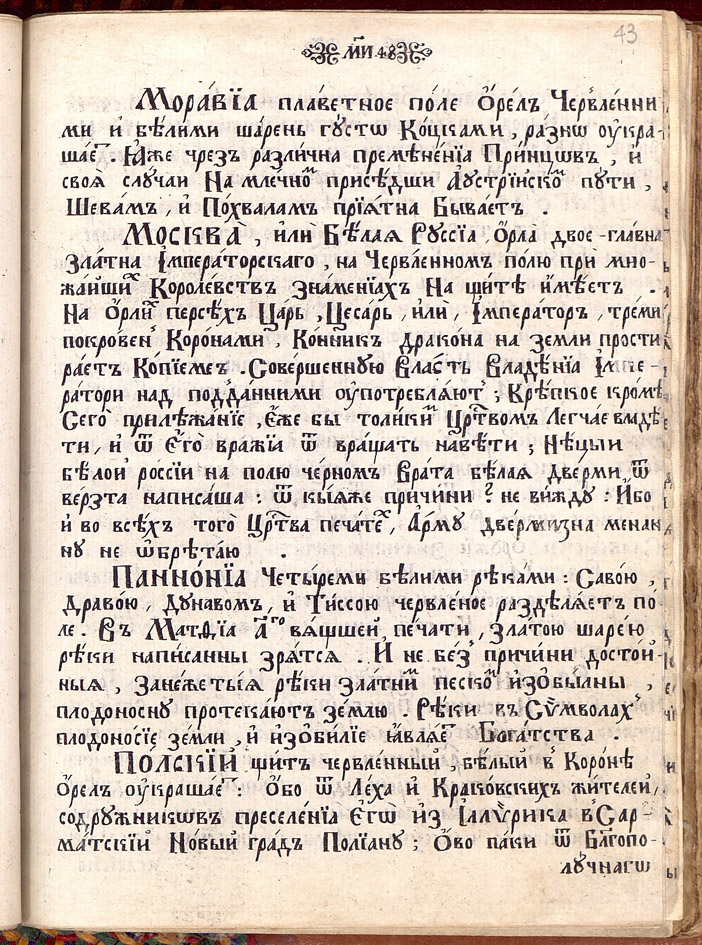 43
М҃И 48
Мора́вїа пла́ветное по́ле Ѻ҆ре́лъ Черв́ленни
ми и҆ бѣ́лими ша́рень гу́стѡ Ко́цками, ра́знѡ оу҆кра-
ша́еᵀ. Ꙗ҆́же чрезъ разли́чна премѣне́нїа При́нцѡвъ, и҆
своѧ̀ слу́чаи На мле́чноᵐ присѣ́дши Аустрі́йскоᵐ пути,
Шева́мъ, и҆ По́хваламъ прїѧ́тна Быва́етъ .
Москва̀, и҆лѝ Бѣ́лаѧ Рꙋссїа, Ѻ҆рла̀ двое-гла́вна
зла́тна І҆мпера́торскаго, на Черв́ленномъ по́лю при мно-
жа́йшиˣ Короле́вствъ зна́менїахъ На щи́тѣ и҆мѣ́етъ .
На Ѻ҆рлиᵐ пе́рсѣхъ Ца́рь, Це́сарь, и҆лѝ, І҆мпера́торъ, треми́
покрове́н Коро́нами, Ко́нникъ драко́на на земли прости
ра́етъ Ко́пїемъ . Сове́ршенную Вла́сть Владѣ́нїа І҆мпе-
ра́тори над по́дданними оу҆потреблѧ́ют ; Крѣ́пкое кро́мѣ
Сего̀ прилѣжа́нїе, Е҆́же бы толи́киᵐ Црⷭ҇твомъ Легча́е владѣ́
ти, и҆ ѿ Е҆гѡ̀ вра́жїа ѿ вра́щать навѣ́ти ; Нѣ́цыи
бѣ́лой россі́и на полю че́рномъ Врата̀ бѣ́лаѧ две́рми ѿ
ве́рзта написа́ша : ѿ кы́ѧже причи́ни ? не ви́жду : И҆бо
и҆ во всѣ́хъ того̀ Црⷭ҇тва печа́теˣ, А҆рму две́рмизна менан
ну не ѡ҆брѣта́ю .
Панно́нїа Четы́ремъ бѣ́лими рѣ́ками : Саво́ю,
Драво́ю, Дуна́вомъ, и҆ Ти́ссою червле́ное раздѣлѧ́етъ по́
ле . Въ Матѳ҇їа а҃ᵍᵒ вѧ́щшей пе́чати, зла́тою ша́рею
рѣ́ки напи́санны зрѧ́тсѧ . И҆ не без причи́ни досто́й-
ныѧ, Зане́жетыѧ рѣ́ки зла́тниᵐ песко́ᵐ изо́бы́лны,
плодоно́сну протека́ютъ зе́млю . Рѣ́ки въ Сѷ́мволахъ
плодоно́сїе зе́мли, и҆ изо́би́лїе ꙗ҆влѧ́еᵀ Бога́тства .
По́лскїй щи́тъ черв́ленный, бѣ́лый в Коро́нѣ
Ѻ҆ре́лъ оу҆краша́еᵀ : Ѻ҆бо ѿ Ле́ха и҆ Кра́ковскихъ жи́телей,
содру́жникѡвъ преселе́нїа Е҆гѡ̀ и҆з І҆ллѷ́рика в Сар-
ма́тскїй Но́вый гра́дъ Полїа́ну ; Ѻ҆во па́ки ѿ Бл҃гопо-
лу́чнагѡ